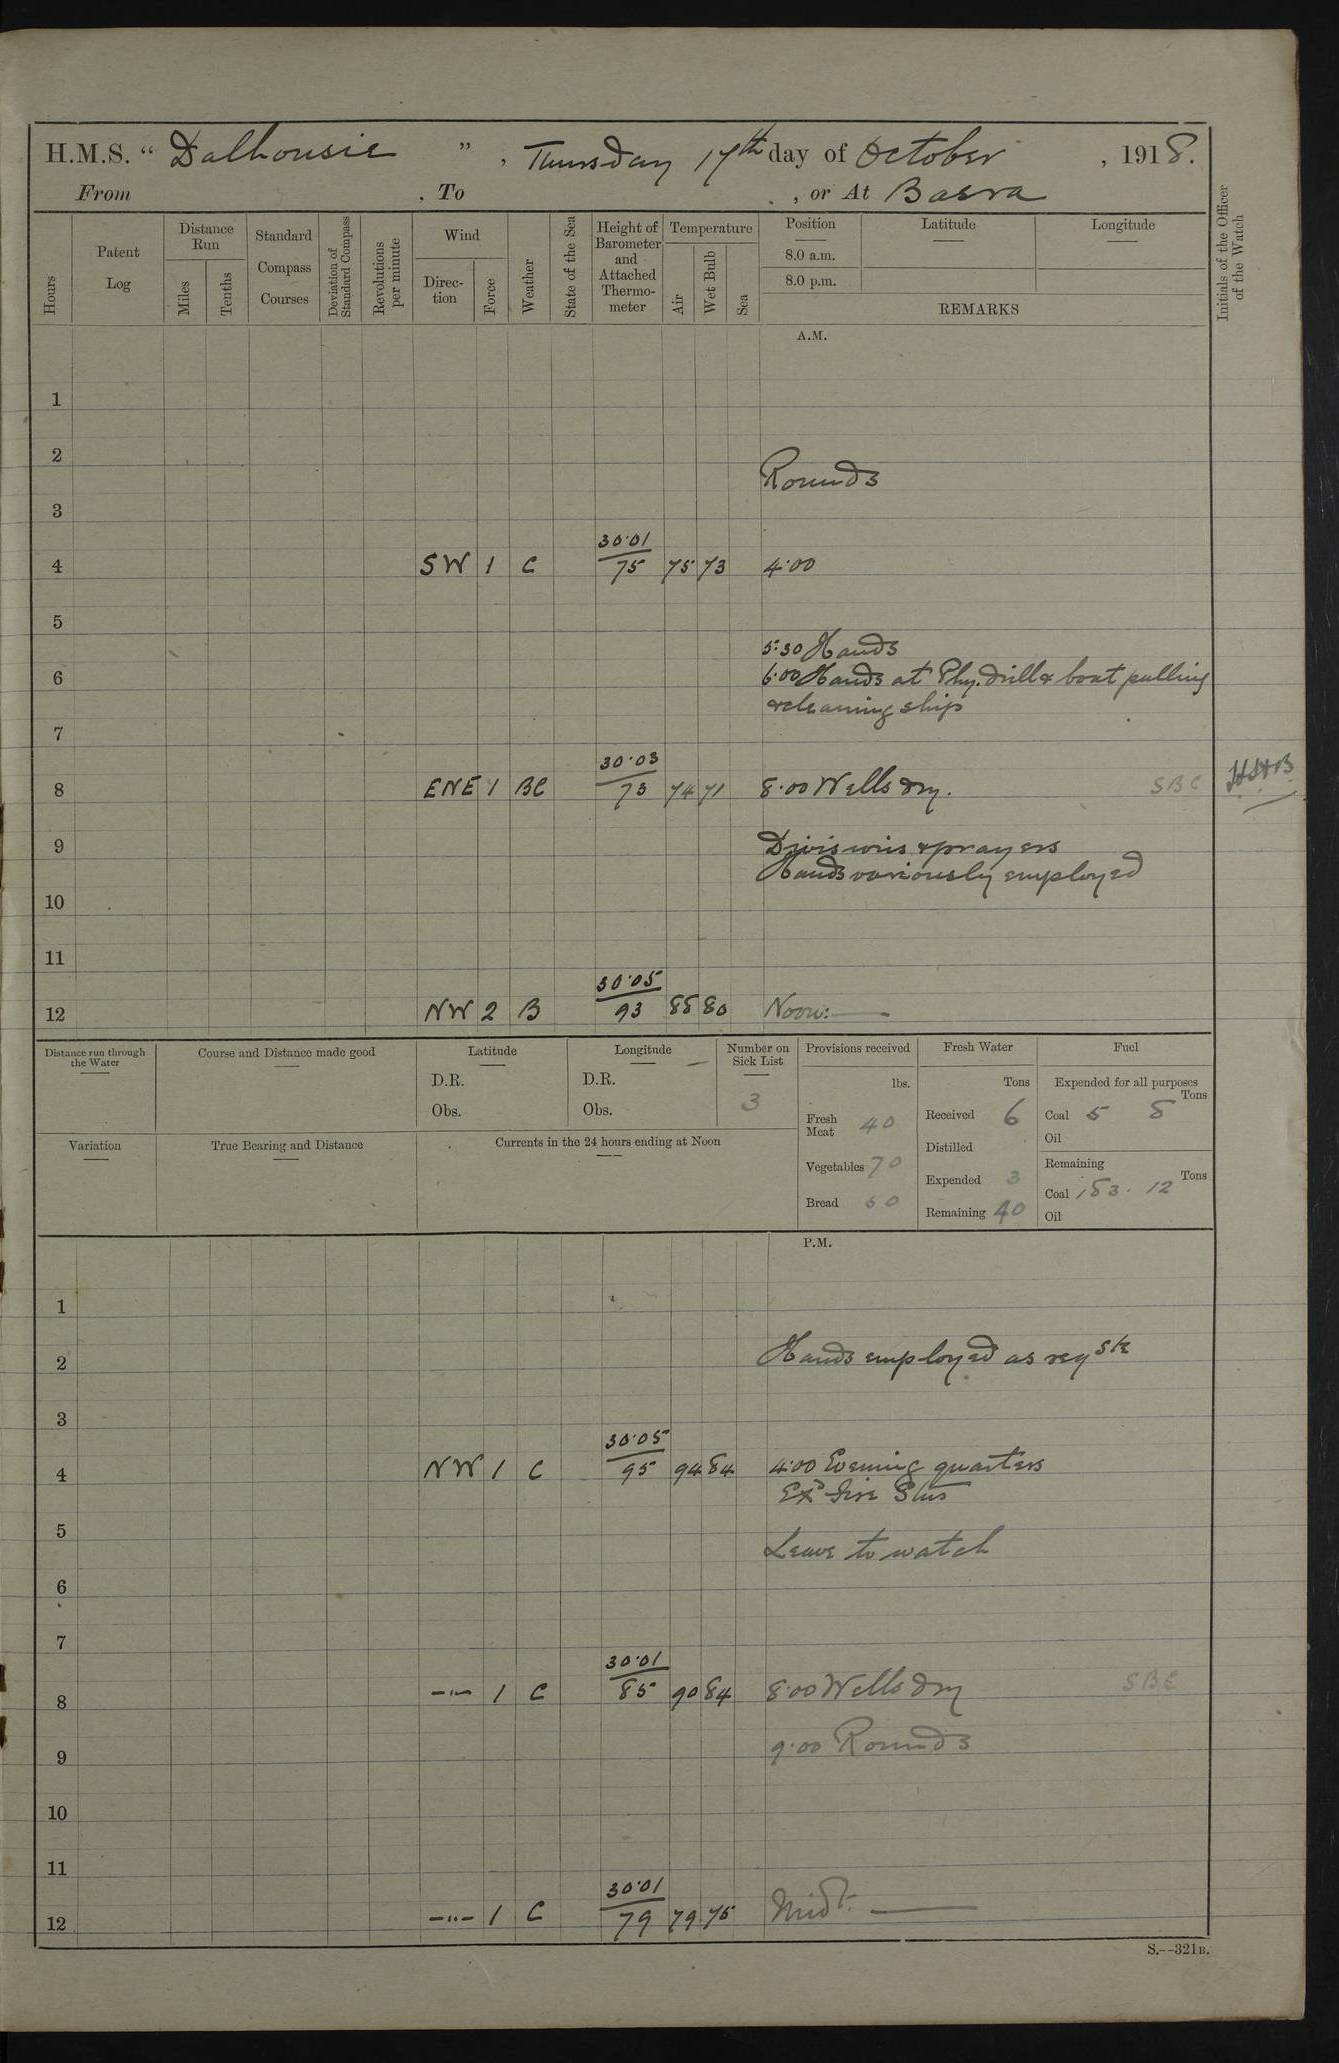 H.M.S. “ Dalhousie ” , Thursday 17th day of October , 1918.
From . To , or At Basra
Hours
Patent Log
Distance Run
Miles
Tenths
Standard Compass Courses
Deviation of Standard Compass
Revolutions per minute
Wind
Direc-tion
Force
Weather
State of the Sea
Height of Barometer and Attached Thermo-meter
Temperature
Air
Wet Bulb
Sea
Position
8.0 a.m.
8.0 p.m.
Latitude
Longitude
REMARKS
Initials of the Officer of the Watch
A.M.
1
2
Rounds
3
30·01
4 SW 1 C 75 75 73 4·00
5
5·30 Hands
6 6·00 Hands at Phy. drill & boat pulling
& cleaning ship
7
30·03
8 ENE 1 BC 73 74 71 8·00 Wells dry. SBC
9 Divisions & prayers
Hands variously employed
10
11
30·05
12 NW 2 B 93 88 80 Noon:
Distance run through the Water
Course and Distance made good
Latitude
D.R.
Obs.
Longitude
D.R.
Obs.
Number on Sick List
3
Provisions received
lbs.
Fresh Meat 40
Vegetables 70
Bread 60
Fresh Water
Tons
Received 6
Distilled
Expended 3
Remaining 40
Fuel
Expended for all purposes
Tons
Coal 5 8
Oil
Remaining
Tons
Coal 183. 12
Oil
Variation
True Bearing and Distance
Currents in the 24 hours ending at Noon
P.M.
1
2 Hands employed as reqste
3
30·05
4 NW 1 C 95 94 84 4·00 Evening quarters
Exd Fire Stns
5 Leave to watch
6
7
30·01
8 -"- 1 C 85 90 84 8·00 Wells dry SBC
9 9·00 Rounds
10
11
30·01
12 -"- 1 C 79 79 75 Midt.
S.--321B.